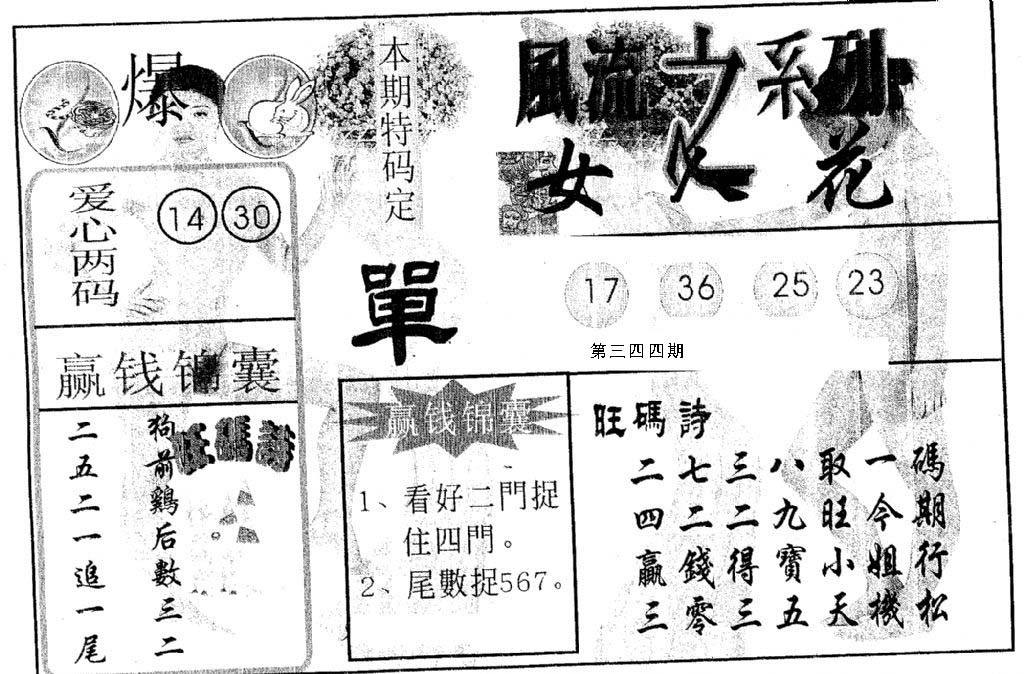 爆
爱心两码
14 30
赢钱锦囊
狗前鷄后數三二
二五二一追一尾
旺碼詩
本期特码定
單
風流之系列
女人花
17 36 25 23
第三四四期
赢钱锦囊
1、看好二門捉
住四門。
2、尾數捉567。
旺碼詩
二七三八取一碼
四二二九旺今期
贏錢得寶小姐行
三零三五天機松